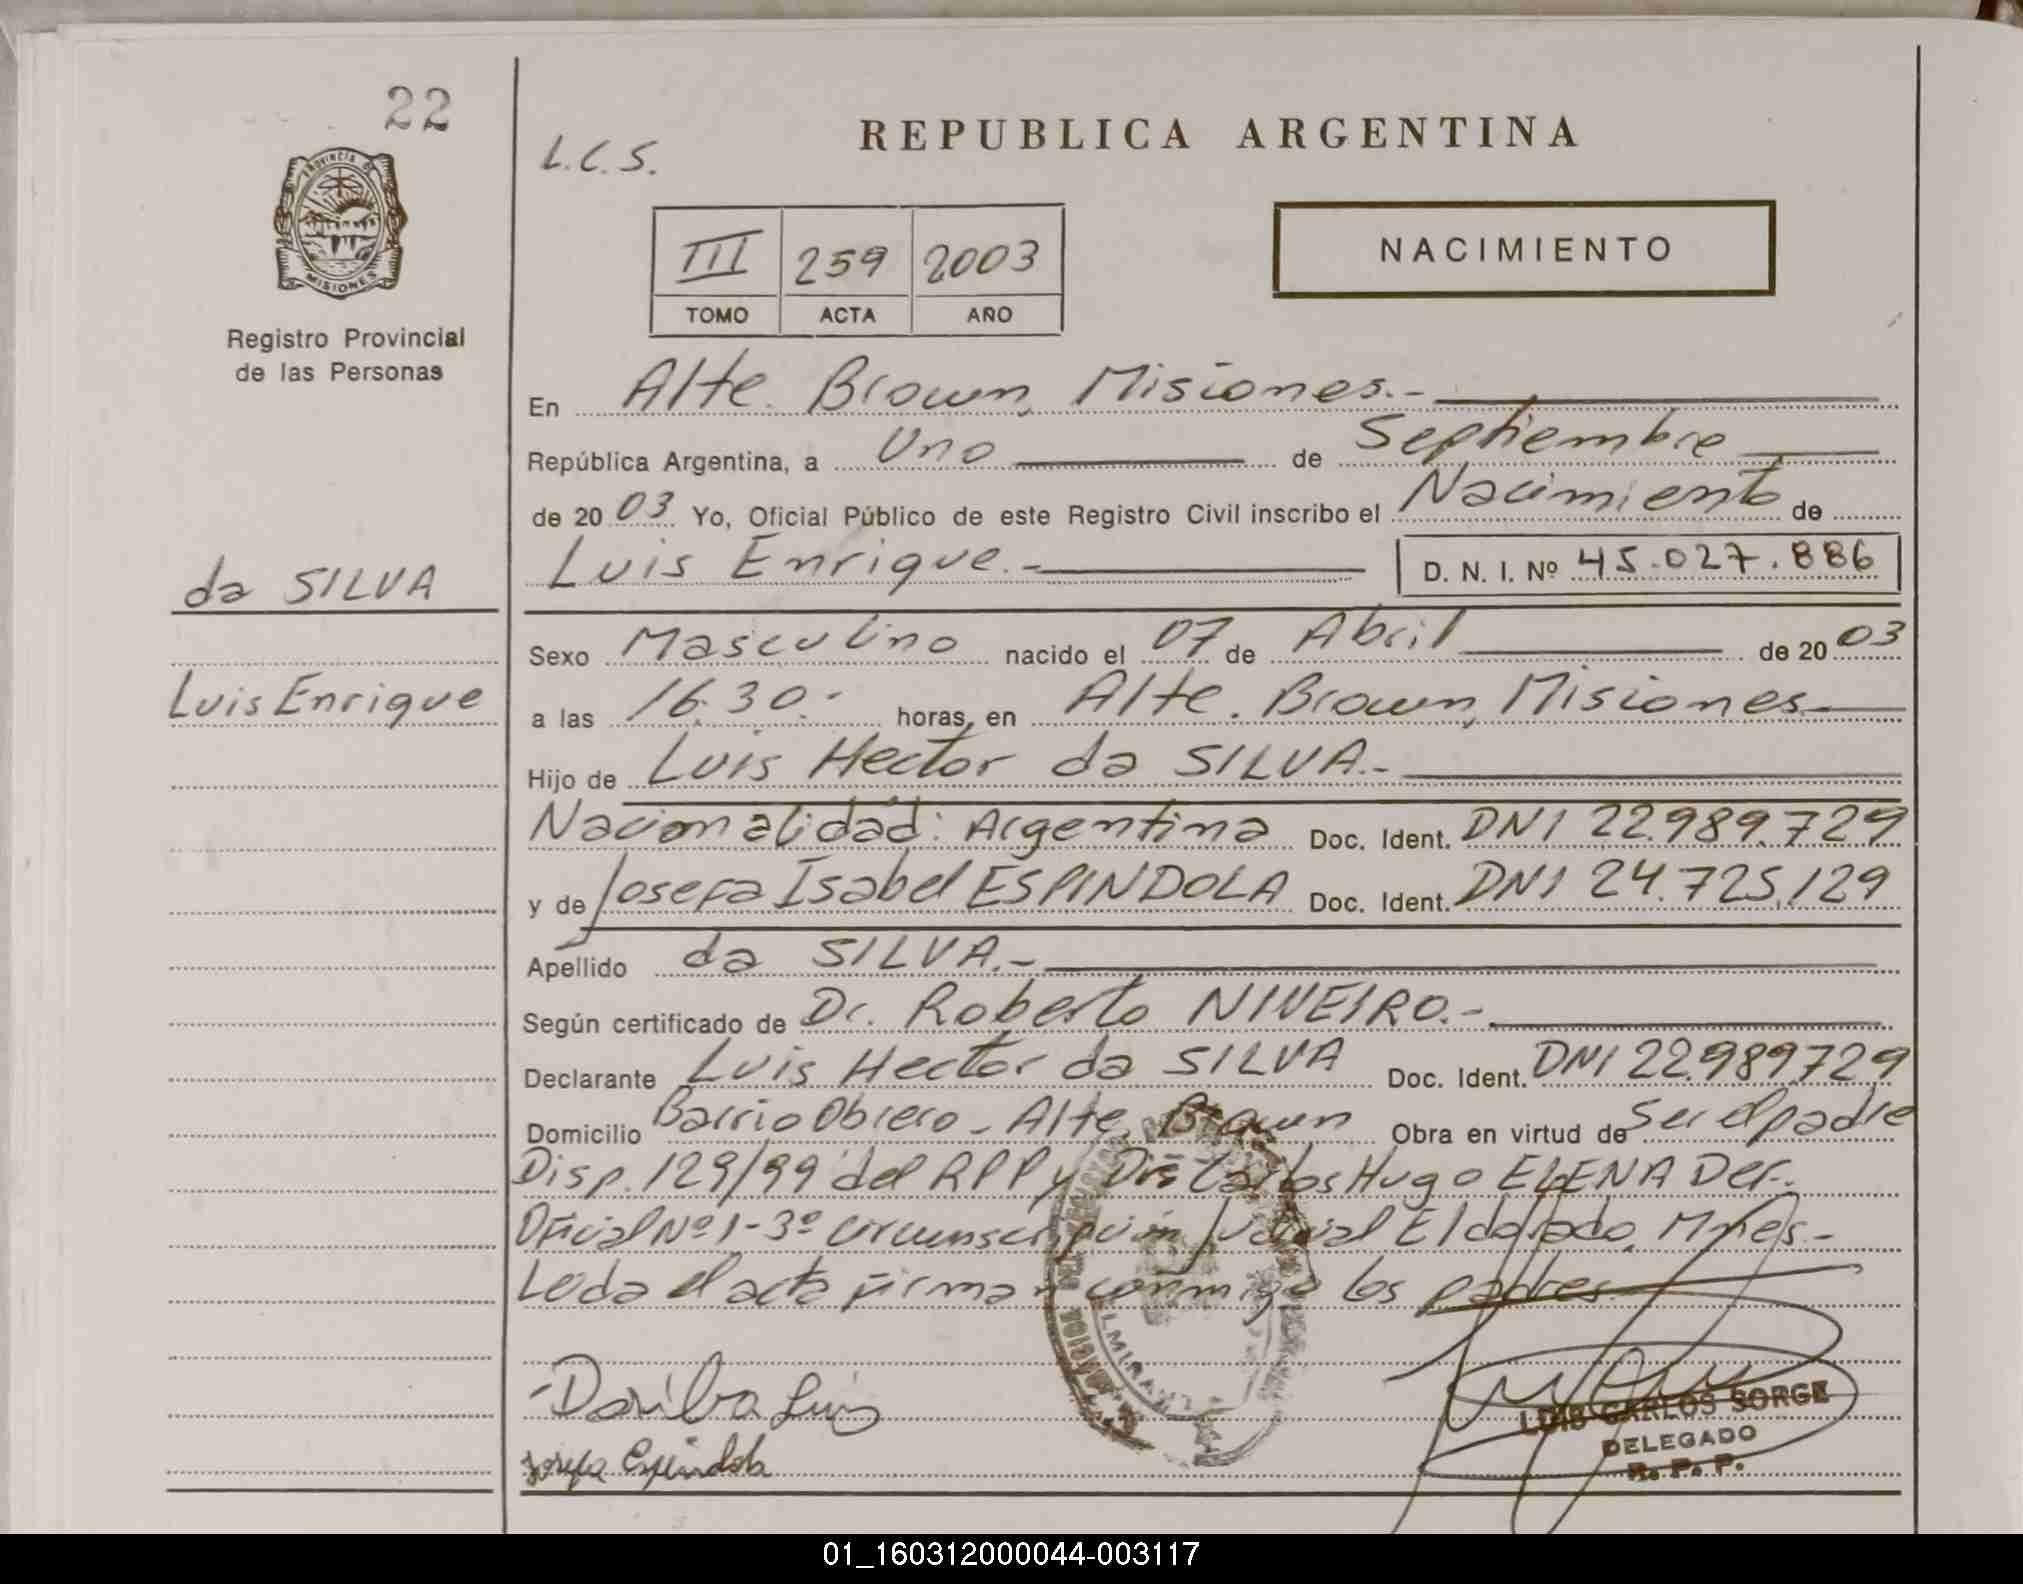 22
PROVINCIA DE
MISIONES
Registro Provincial
de las Personas
da SILVA
Luis Enrique
L.C.S.
REPUBLICA ARGENTINA
III 259 2003
TOMO ACTA AÑO
NACIMIENTO
En Alte. Brown, Misiones.-
República Argentina, a Uno de Septiembre
de 2003 Yo, Oficial Público de este Registro Civil inscribo el Nacimiento de
Luis Enrique.- D. N. I. Nº 45.027.886
Sexo Masculino nacido el 07 de Abril de 2003
a las 16.30.- horas, en Alte. Brown, Misiones.-
Hijo de Luis Hector da SILVA.-
Nacionalidad: Argentina Doc. Ident. DNI 22.989.729
y de Josefa Isabel ESPINDOLA Doc. Ident. DNI 24.725.129
Apellido da SILVA.-
Según certificado de Dr. Roberto NIVEIRO.-
Declarante Luis Hector da SILVA Doc. Ident. DNI 22.989.729
Domicilio Barrio Obrero - Alte. Brown Obra en virtud de Ser el padre
Disp. 129/99 del RPP y Carlos Hugo ELENA Def.
Oficial Nº 1-3º circunscripción Judicial Eldorado, Mnes.-
Leída el acta firman conmigo los padres
Dasilva Luis
Josefa Espindola
LUIS CARLOS SORGE
DELEGADO
R. P. P.
01_160312000044-003117